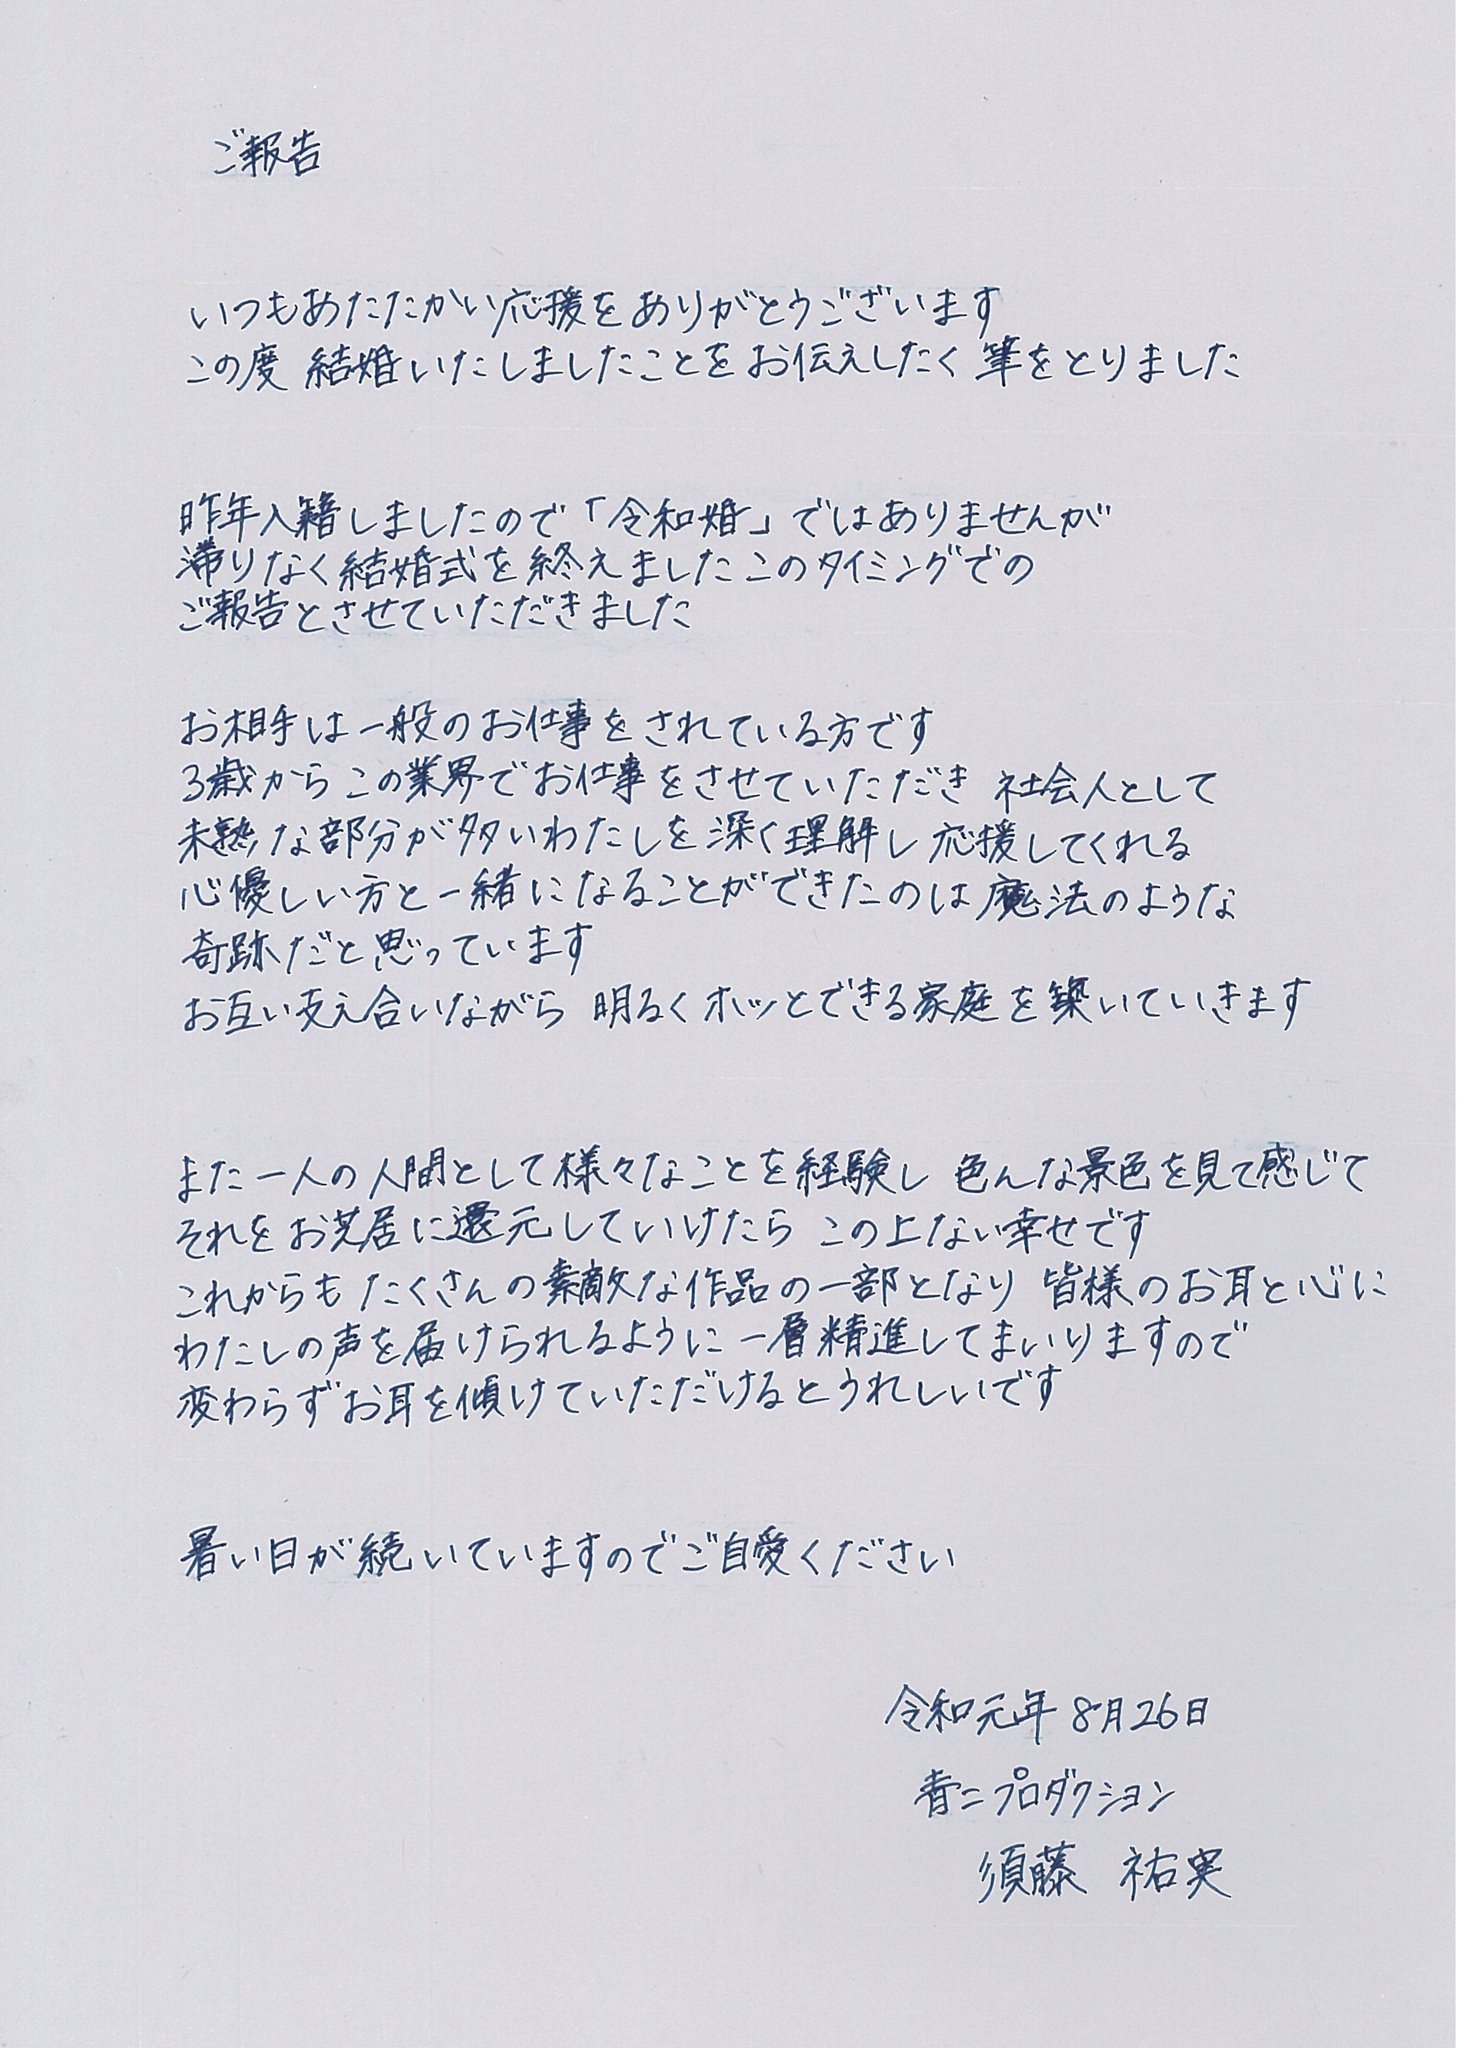 ご報告
いつもあたたかい応援をありがとうございます
この度 結婚いたしましたことをお伝えしたく 筆をとりました
昨年入籍しましたので「令和婚」ではありませんが
滞りなく結婚式を終えましたこのタイミングでの
ご報告とさせていただきました
お相手は一般のお仕事をされている方です
3歳からこの業界でお仕事をさせていただき 社会人として
未熟な部分が多いわたしを深く理解し 応援してくれる
心優しい方と一緒になることができたのは魔法のような
奇跡だと思っています
お互い支え合いながら 明るくホッとできる家庭を築いていきます
また一人の人間として様々なことを経験し 色んな景色を見て感じて
それをお芝居に還元していけたら この上ない幸せです
これからも たくさんの素敵な作品の一部となり 皆様のお耳と心に
わたしの声を届けられるように一層精進してまいりますので
変わらずお耳を傾けていただけるとうれしいです
暑い日が続いていますのでご自愛ください
令和元年 8月26日
青二プロダクション
須藤 祐実